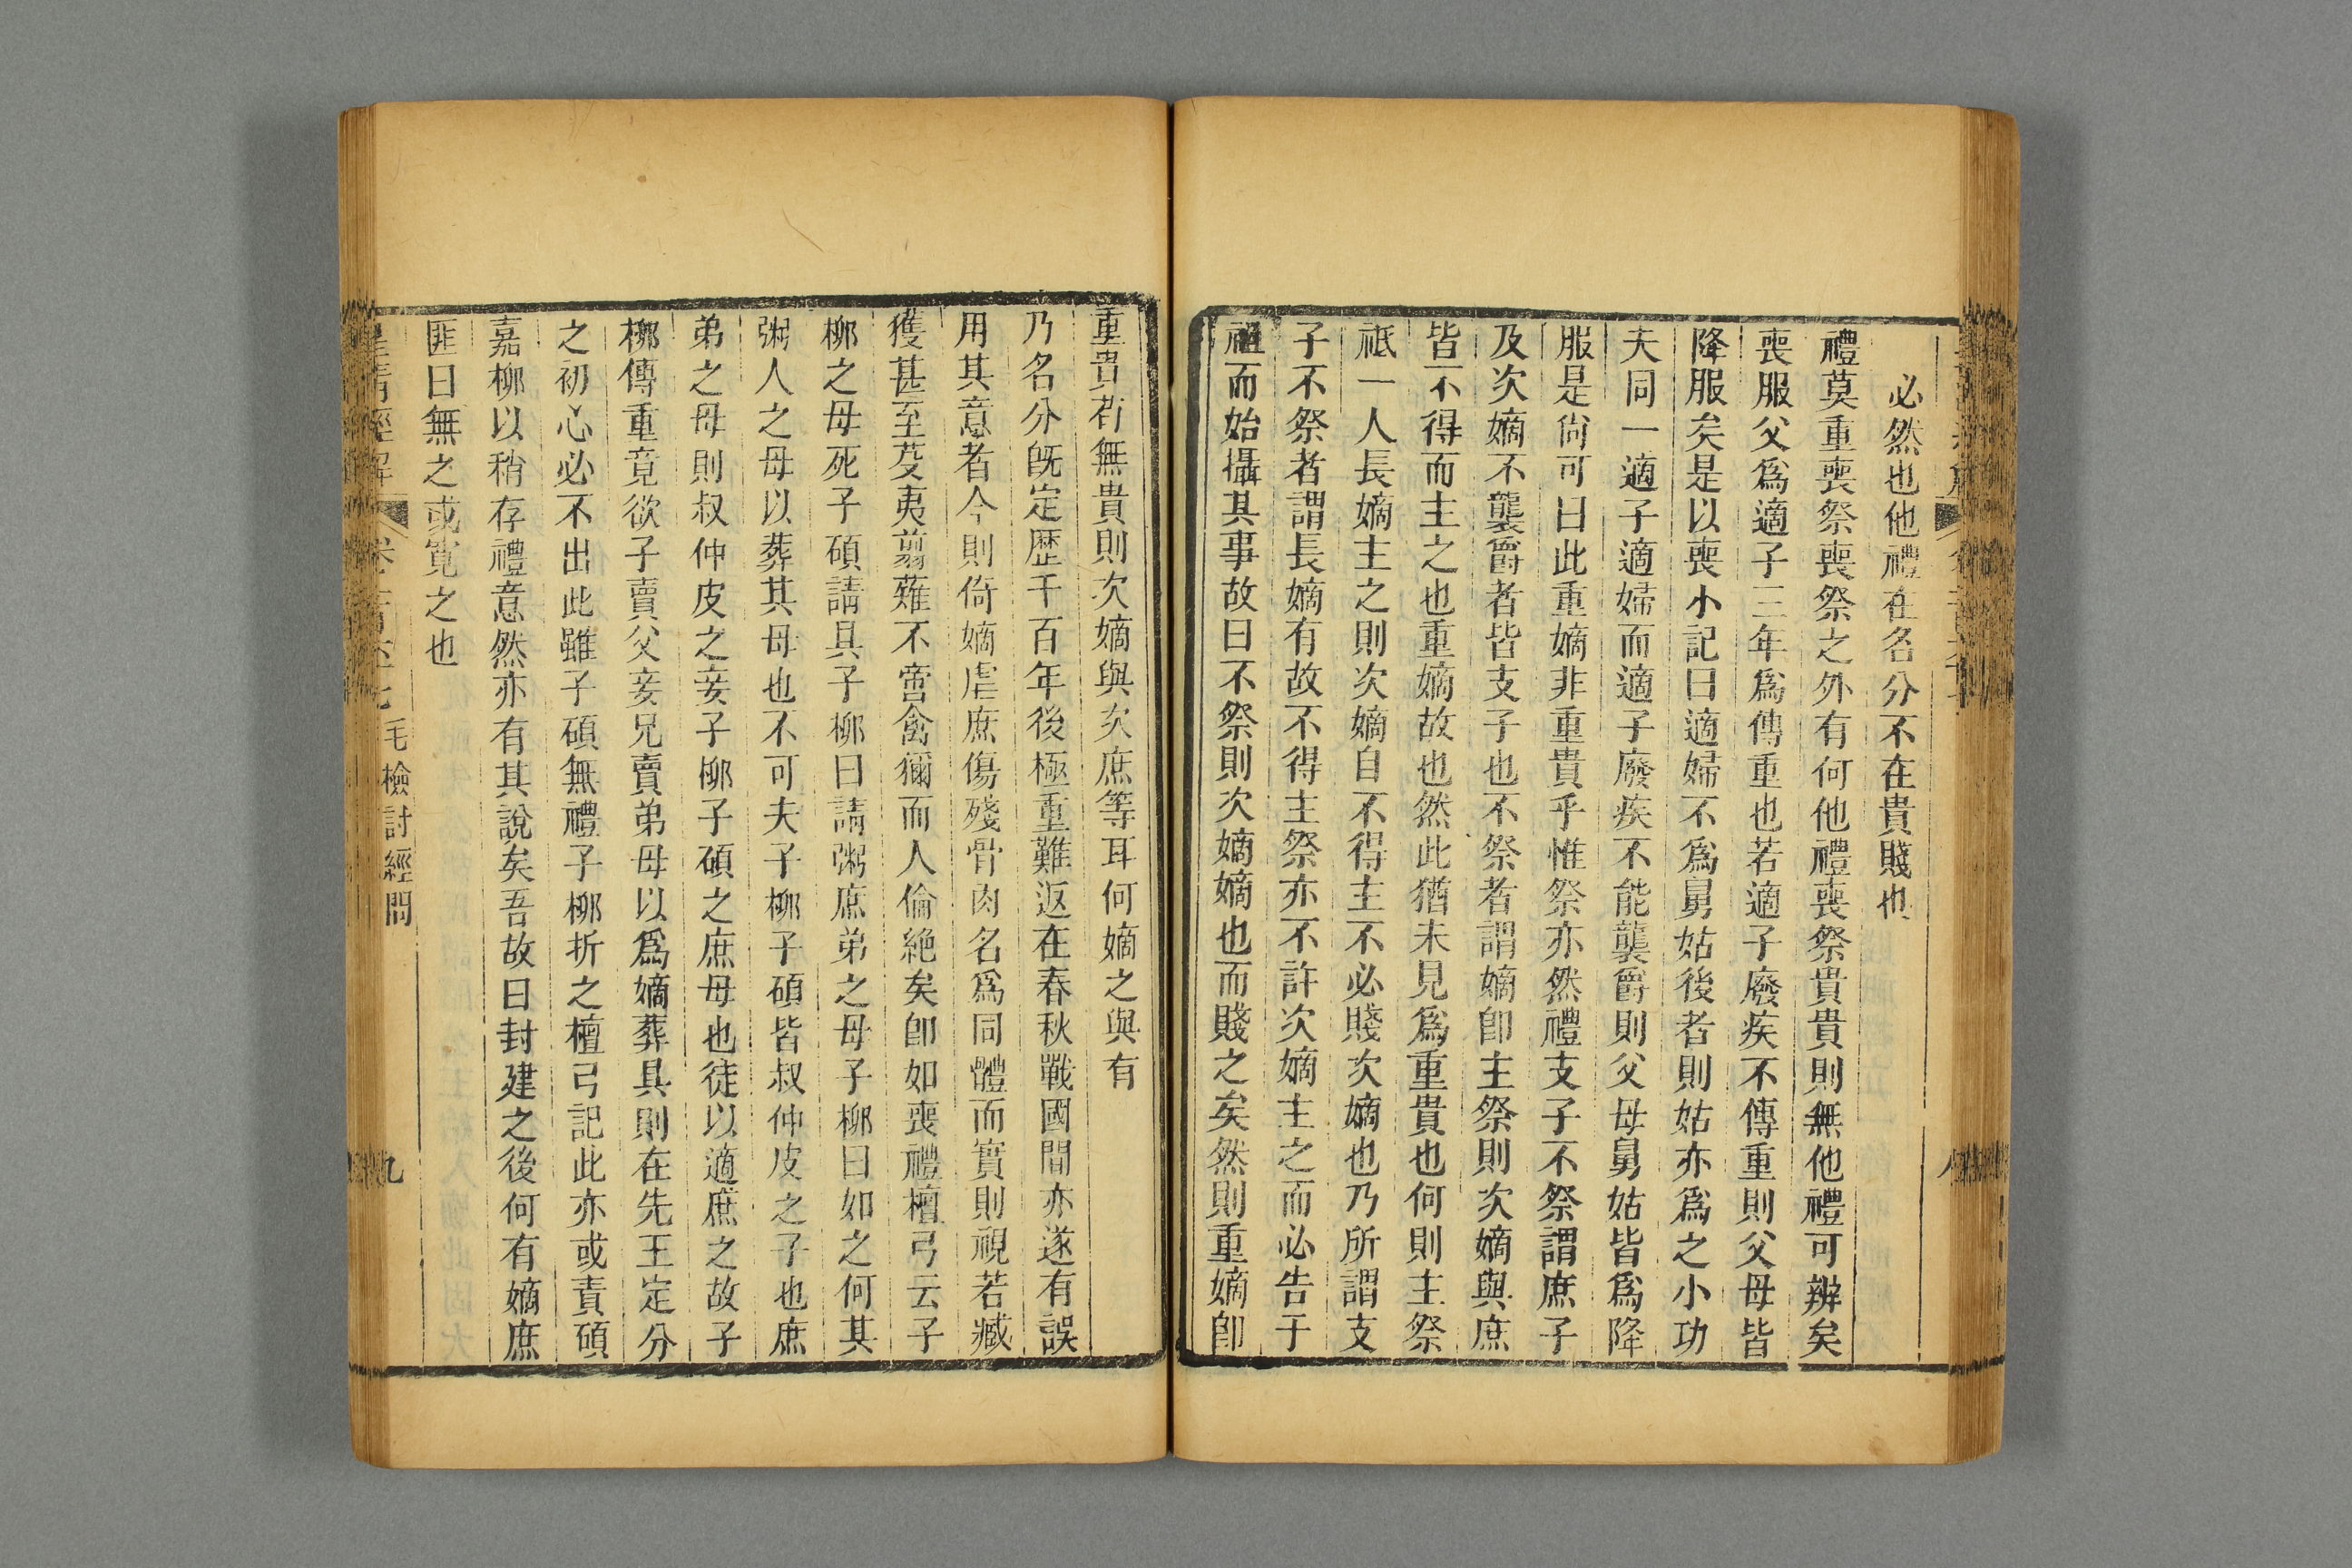 必然也他禮在名分不在貴賤也
禮莫重喪祭喪祭之外有何他禮喪祭貴貴則無他禮可辨矣
喪服父爲適子三年爲傳重也若適子廢疾不傳重則父母皆
降服矣是以喪小記曰適婦不爲舅姑後者則姑亦爲之小功
夫同一適子適婦而適子廢疾不能襲爵則父母舅姑皆爲降
服是尙可曰此重嫡非重貴乎惟祭亦然禮支子不祭謂庶子
及次嫡不襲爵者皆支子也不祭者謂嫡卽主祭則次嫡與庶
皆不得而主之也重嫡故也然此猶未見爲重貴也何則主祭
祗一人長嫡主之則次嫡自不得主不必賤次嫡也乃所謂支
子不祭者謂長嫡有故不得主祭亦不許次嫡主之而必告于
祖而始攝其事故曰不祭則次嫡嫡也而賤之矣然則重嫡卽
重貴若無貴則次嫡與次庶等耳何嫡之與有
乃名分旣定歷千百年後極重難返在春秋戰國間亦遂有誤
用其意者今則倚嫡虐庶傷殘骨肉名爲同體而實則視若臧
獲甚至芟夷翦薙不啻禽獮而人倫絶矣卽如喪禮檀弓云子
柳之母死子碩請具子柳曰請粥庶弟之母子柳曰如之何其
粥人之母以葬其母也不可夫子柳子碩皆叔仲皮之子也庶
弟之母則叔仲皮之妾子柳子碩之庶母也徒以適庶之故子
柳傳重竟欲子賣父妾兄賣弟母以爲嫡葬具則在先王定分
之初心必不出此雖子碩無禮子柳折之檀弓記此亦或責碩
嘉柳以稍存禮意然亦有其說矣吾故曰封建之後何有嫡庶
匪曰無之或寬之也
清經解 毛檢討經問 九